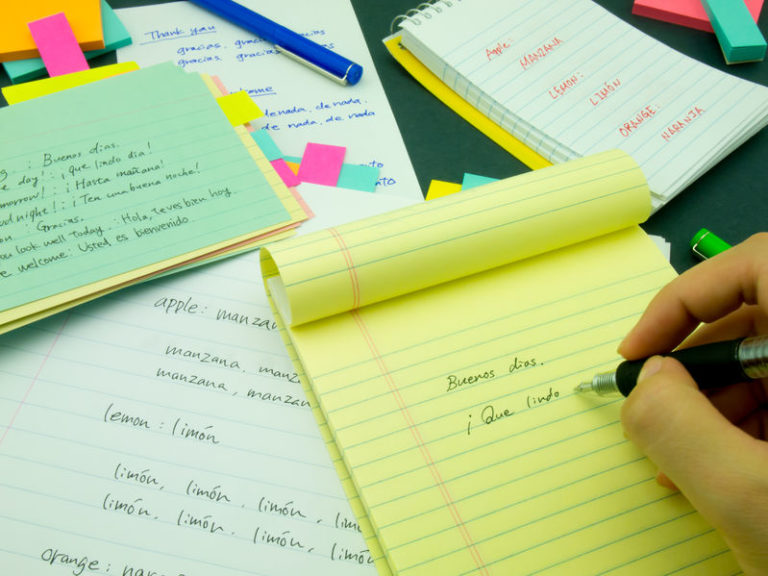 Thank you
gracias, gracias, gracias
gracias, gracias,
de nada, de nada,
de nada, de nada
Apple:
MANZANA
LEMON:
LIMÓN
ORANGE:
NARANJA
: Buenos dias.
day! : ¡que lindo dia!
: ¡Hasta mañana!
night! : ¡Ten una buena noche!
: Gracias.
look well today. : Hola, te ves bien hoy.
welcome: Usted es bienvenido
apple: manzana
manzana, manz
manzana, manzan
lemon: limón
limón, limón, limón, lim
limón, limón, limón, limó
orange: nara
Buenos dias.
¡Que lindo